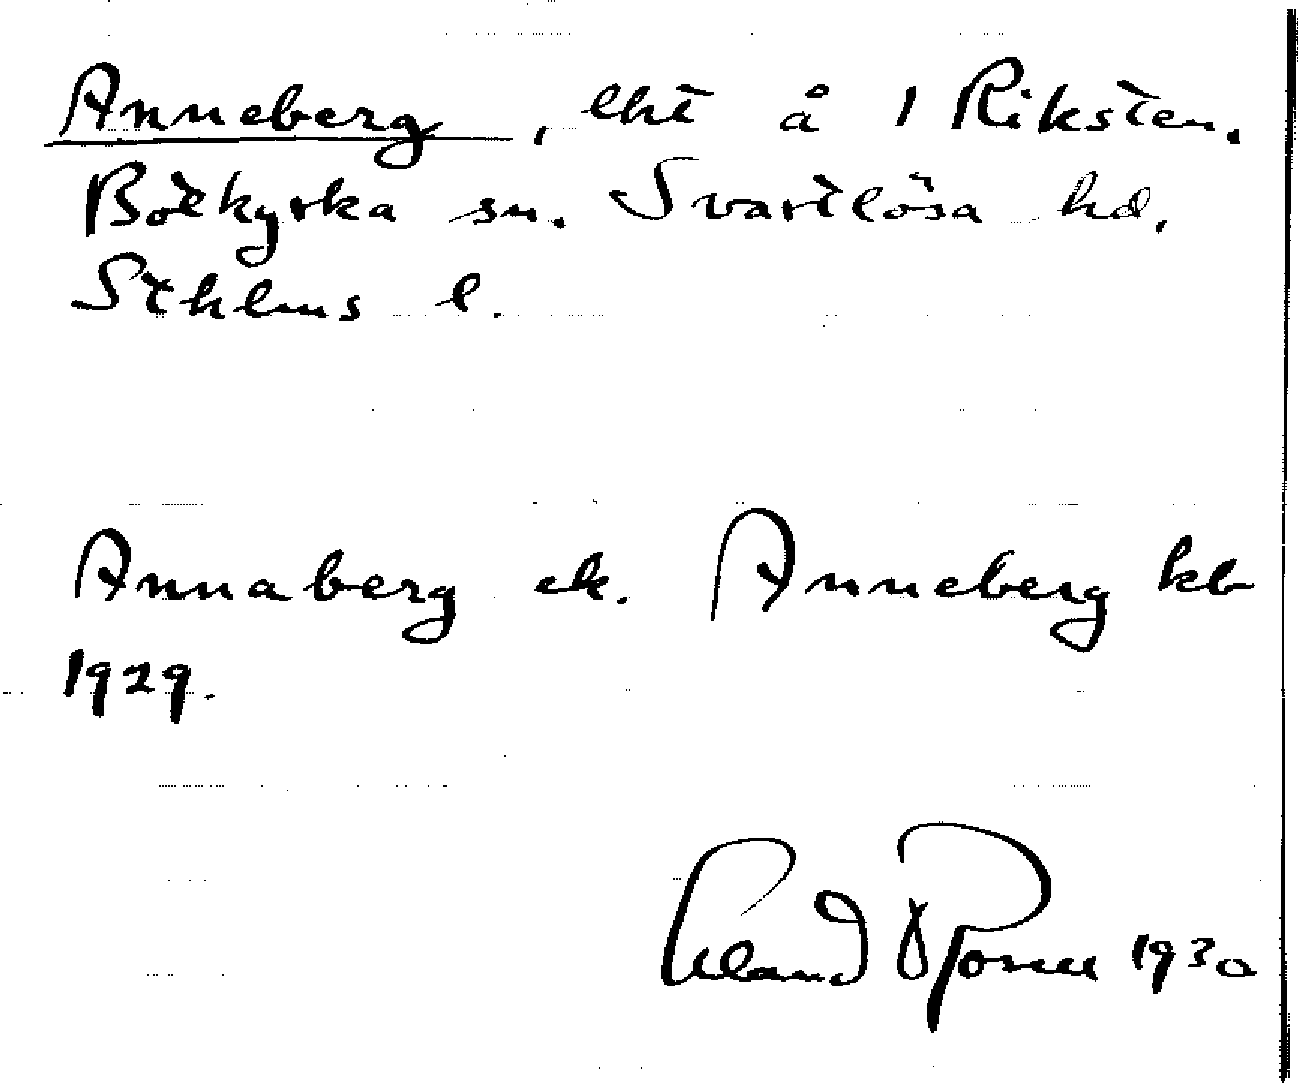 Anneberg, lht å 1 Riksten.
Botkyrka sn. Svartlösa hd.
Sthlms l.
Annaberg ek. Anneberg kb
1929.
Erland Rosell 1930